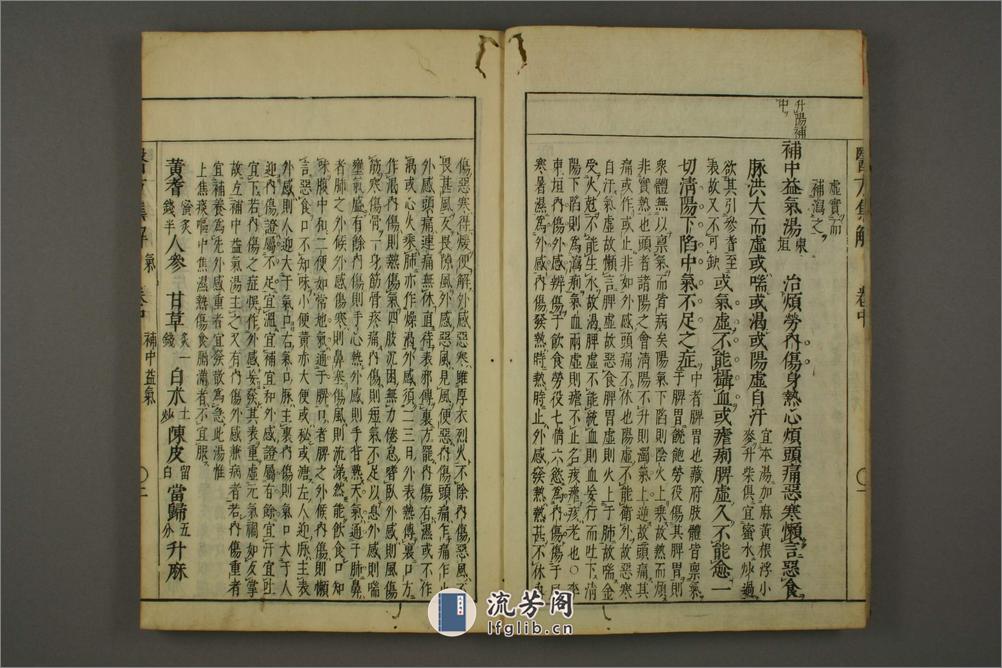 醫方集解 卷中
虛實而
補瀉之
升陽補
中
補中益氣湯 東垣 治煩勞內傷身熱心煩頭痛惡寒懶言惡食
脉洪大而虛或喘或渴或陽虛自汗 宜本湯加麻黃根浮小
麥升柴俱宜蜜水炒過
欲其引參耆至
表故又不可缺 或氣虛不能攝血或瘧痢脾虛久不能愈一
切淸陽下陷中氣不足之症 中者脾胃也藏府肢體皆稟氣
于脾胃饑飽勞役傷其脾胃則
衆體無以稟氣而皆病矣陽氣下陷則陰火上乘故熱而煩
非實熱也頭者諸陽之會淸陽不升則濁氣上逆故頭痛其
痛或作或止非如外感頭痛不休也陽虛不能衛外故惡寒
自汗氣虛故懶言脾虛故惡食脾胃虛則火上于肺故喘金
受火尅不能生水故渴脾虛不能統血則血妄行而吐下淸
陽下陷則爲瀉痢氣血兩虛則瘧不止名痎瘧痎老也〇李
東垣內外傷辨曰傷于飲食勞役七情六慾爲內傷傷于風
寒暑濕爲外感內傷發熱時熱時止外感發熱熱甚不休內
傷惡寒得煖便解外感惡寒雖厚衣烈火不除內傷惡風不
畏甚風反畏隙風外感惡風見風便惡內傷頭痛乍痛乍止
外感頭痛連痛無休直待表邪傳裏方罷內傷有濕或不作
渴或心火乘肺亦作燥渴外感須二三日外表熱傳裏口方
作渴內傷則熱傷氣四肢沉困無力倦怠嗜臥外感則風傷
筋寒傷骨一身筋骨疼痛內傷則短氣不足以息外感則喘
壅氣盛有餘內傷則手心熱外感則手背熱天氣通于肺鼻
者肺之外候外感傷寒則鼻塞傷風則流涕然能飲食口知
味腹中和二便如常地氣通于脾口者脾之外候內傷則懶
言惡食口不知味小便黃赤大便或秘或溏左人迎脉主表
外感則人迎大于氣口右氣口脉主裏內傷則氣口大于人
迎內傷證屬不足宜溫宜補宜和外感證屬有餘宜汗宜吐
宜下若內傷之症悞作外感妄發其表重虛元氣禍如反掌
故立補中益氣湯主之又有內傷外感兼病者若內傷重者
宜補養爲先外感重者宜發散爲急此湯惟
上焦痰嘔中焦濕熱傷食膈滿者不宜服
黃耆 蜜炙
錢半 人參 甘草 炙一
錢 白朮 土
炒 陳皮 留
白 當歸 五
分 升麻
醫方集解 氣 卷中 補中益氣 〇二
流芳阁
lfglib.cn